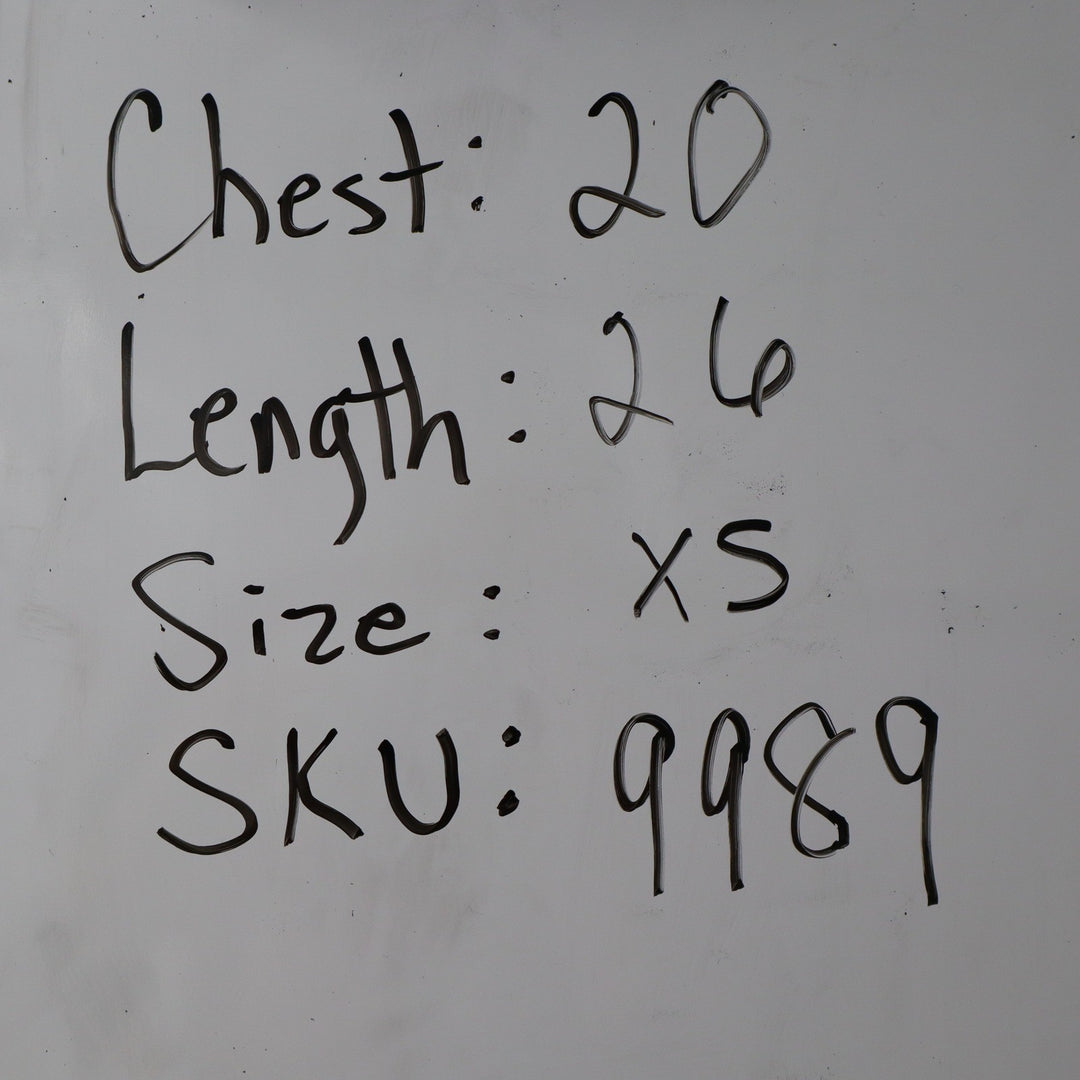 Chest: 20
Length: 26
Size: XS
SKU: 9989